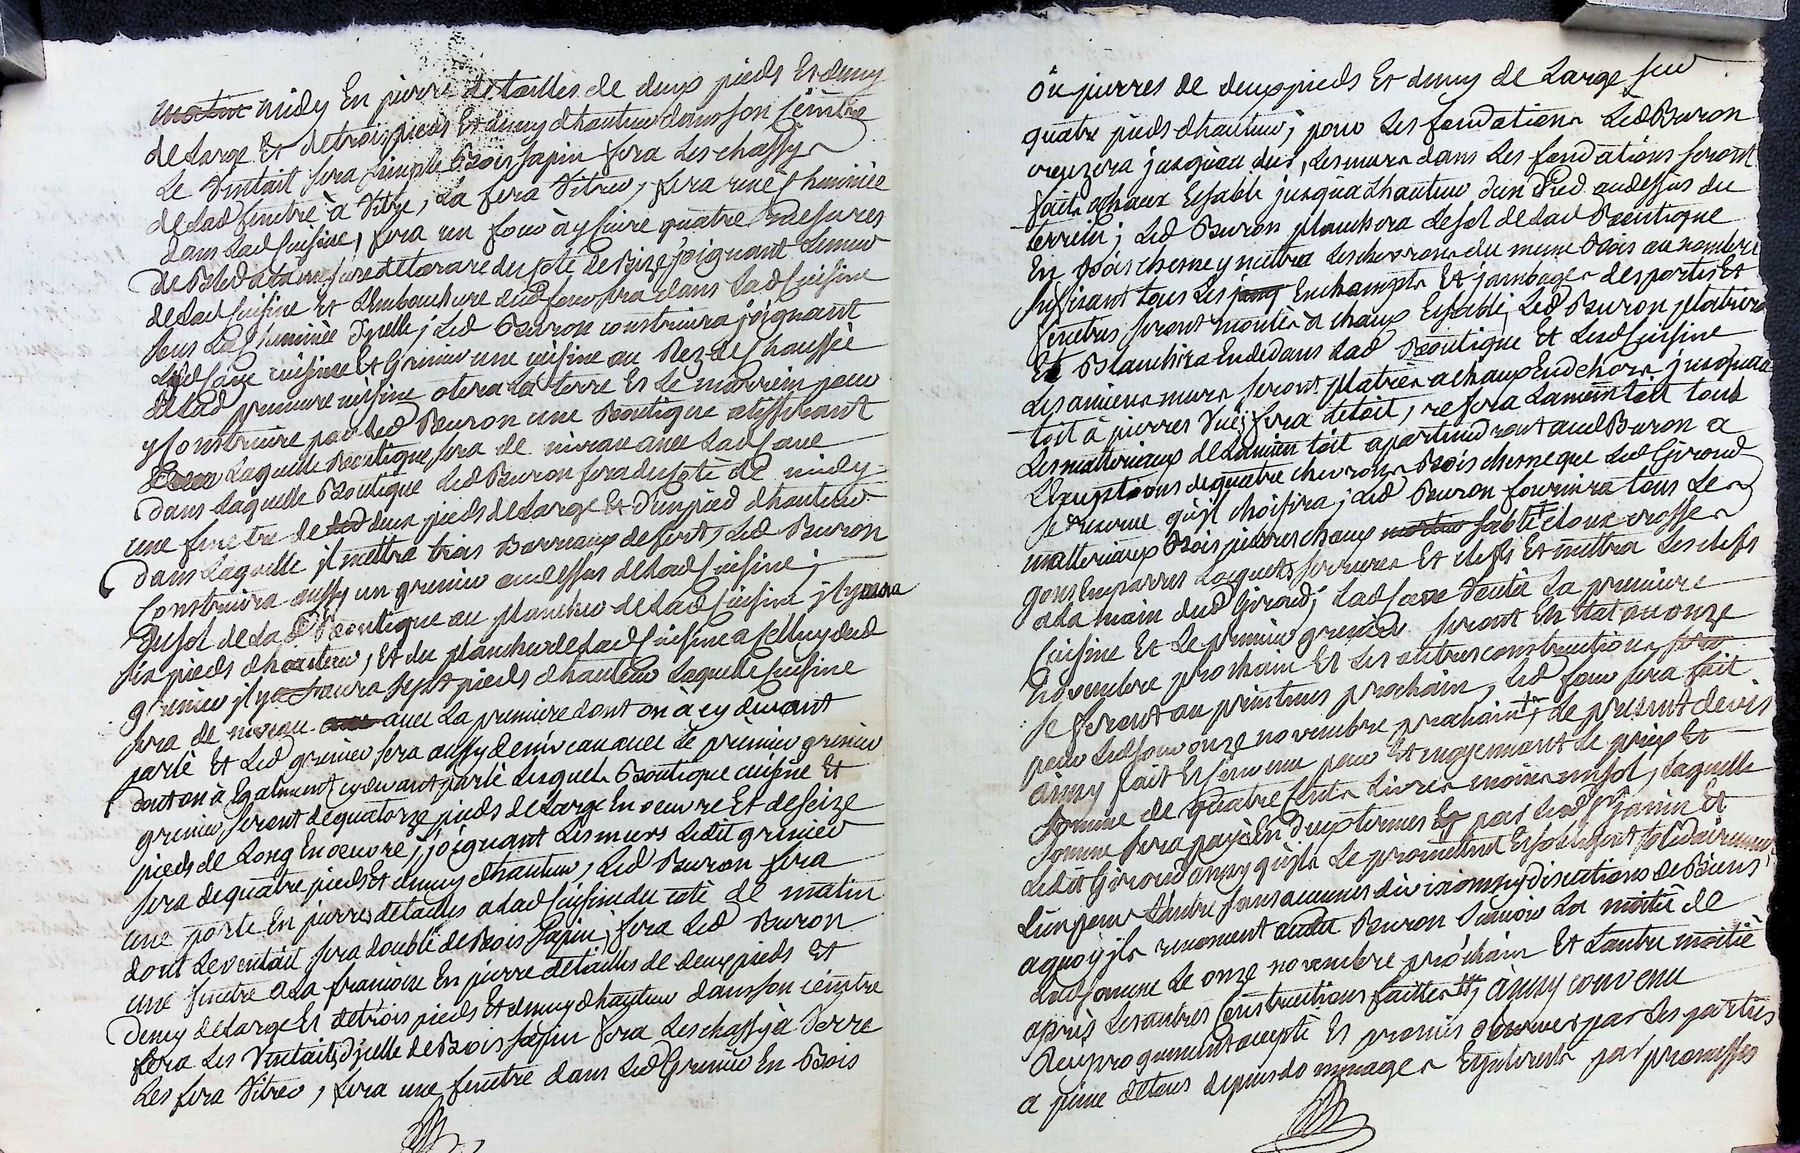 midy En pierre de tailles de deux pieds Et demy
de Large Et de trois pieds Et demy dhauteur dans son ceintre
Le Ventait sera simple Bois sapin fera Les chassy
de Lad fenetre à Vitre, La fera Vitrer, fera une Cheminée
dans Lad Cuisine, fera un four à y Cuire quatre mesures
de Bled a la mesure de tarare du Coté de Bize joignant Le mur
de Lad Cuisine Et L'Embouchure dud four sera dans Lad Cuisine
sous La Cheminée d'ycelle; Led Buron construira joignant
Lesd Cave cuisine Et Grenier une cuisine au Rez de Chaussée
de Lad premiere cuisine otera La terre Et Le marrein pour
y Construire par Led Buron une Boutique
Laquelle Boutique sera de niveau avec Lad Cave
dans Laquelle Boutique Led Buron fera du Coté de midy
une fenetre de deux pieds de Large Et D'un pied dhauteur
dans Laquelle il mettra trois Barreaux de fert, Led Buron
Construira aussy un grenier au dessus de Lad Cuisine;
du sol de Lad Boutique au plancher de Lad Cuisine il y aura
six pieds dhauteur, Et du plancher de Lad Cuisine a Celluy dud
grenier il y aura sept pieds dhauteur Laquelle Cuisine
sera de niveau avec La premiere dont on à cy devant
parlé Et Led grenier sera aussy de niveau avec Le premier grenier
dont on à Egalement cy devant parlé Lesquels Boutique cuisine Et
grenier seront de quatorze pieds de Large En oeuvre Et de seize
pieds de Long En oeuvre, joignant Les murs Ledit grenier
sera de quatre pieds Et demy dhauteur, Led Buron fera
une porte En pierres de tailles a Lad Cuisine du coté de matin
dont Le ventait sera doublé de Bois sapin; fera Led Buron
une fenetre a La franoise En pierre de tailles de deux pieds Et
demy de Large Et de trois pieds Et demy dhauteur dans son ceintre
fera Les Ventaits d'ycelle de Bois sapin fera Les chassy à Verre
Les fera Vitrer, fera une fenetre dans Led Grenier En Bois
ou pierres de deux pieds Et demy de Large sur
quatre pieds dhauteur; pour Les fondations Led Buron
creuzera jusqu'au dur, Les murs dans Les fondations seront
faits a chaux Et sable jusqua Lhauteur d'un Pied au dessus du
terrein; Led Buron planchera Le sol de Lad Boutique
En Bois chesne y mettra Les chevrons du meme Bois au nombre
suffisant tous Les Enchampts Et jambages des portes Et
fenetres seront montés à chaux Et sable, Led Buron platrira
Et Blanchira En dedans Lad Boutique Et Lesd Cuisine
Les anciens murs seront platrés a chaux En dehors jusqu'au
toit à pierres Vue; fera Le toit, refera Lancien toit tout
Les matteriaux de Lancien toit apartiendront aud Buron a
L'Exception de quatre chevrons Bois chesne que Led Giroud
se reserve qu'il choisira; Led Buron fournira tous Les
matteriaux Bois pierres chaux sable Cloux crosses
gons Emparres Loquets serrures Et clefs Et mettra Les clefs
a La main dud Giroud; Lad Cave Vouté La premiere
Cuisine Et Le premier grenier seront En Etat au onze
novembre prochain Et Les autres constructions
se feront au printems prochain, Led four sera fait
pour Led jour onze novembre prochain; Le present devis
ainsy fait Et Convenu pour Et moyennant Le prix Et
somme de quatre Cents Livres moins un sol, Laquelle
somme sera payé En deux termes par Led Sr janin Et
Ledit Giroud ainsy qu'ils Le promettent Et s'obligent solidairement
L'un pour L'autre sans aucunes divisions ny discutions de Biens
a quoy ils renoncent aud Buron scavoir La moitié de
Lad somme Le onze novembre prochain Et L'autre moitié
après Les autres Constructions faittes, ainsy convenu
Reciproquement accepté Et promis observer par Les parties
a peine de tous depens dommages Et interets par promesses